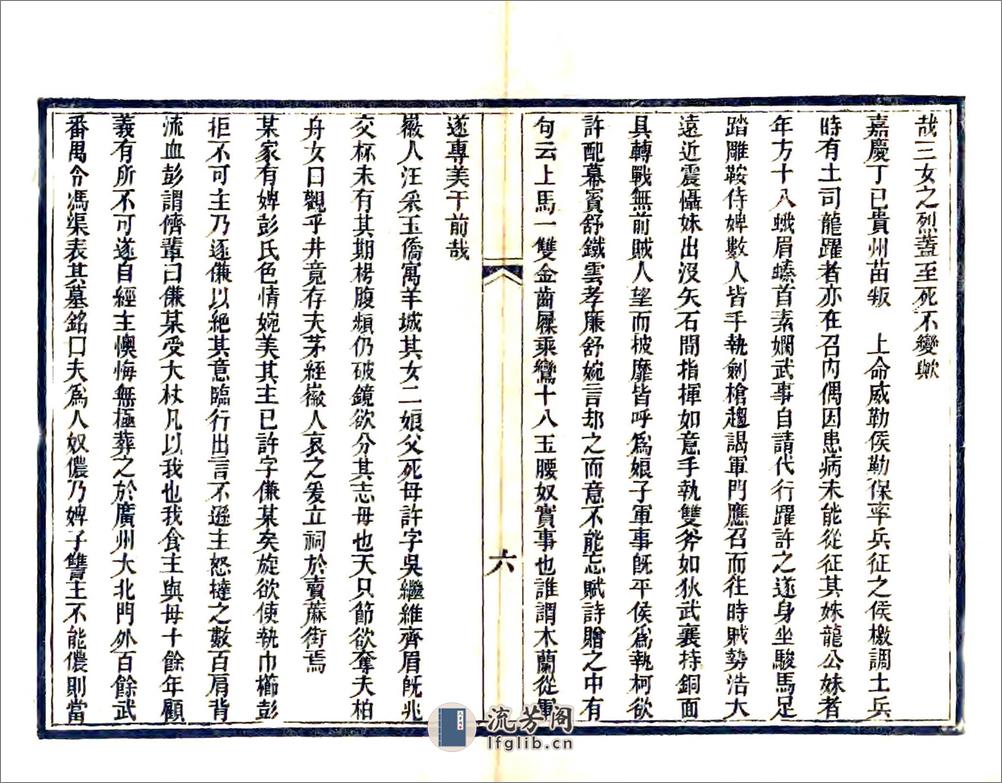 哉三女之烈蓋至死不變歟
嘉慶丁巳貴州苗叛 上命威勒侯勒保率兵征之侯檄調土兵
時有土司龍躍者亦在召內偶因患病未能從征其妹龍公妹者
年方十八蛾眉螓首素嫻武事自請代行躍許之遂身坐駿馬足
踏雕鞍侍婢數人皆手執劍槍趨謁軍門應召而往時賊勢浩大
遠近震懾妹出沒矢石間指揮如意手執雙斧如狄武襄持銅面
具轉戰無前賊人望而披靡皆呼爲娘子軍事旣平侯爲執柯欲
許配幕賓舒鐵雲孝廉舒婉言却之而意不能忘賦詩贈之中有
句云上馬一雙金齒屧乘鸞十八玉腰奴實事也誰謂木蘭從軍
遂專美于前哉
徽人汪采玉僑寓羊城其女二娘父死母許字吳繼維齊眉旣兆
交杯未有其期楊腹頻仍破鏡欲分其志母也天只節欲奪夫柏
舟女口觀乎井竟存夫茅絰徽人哀之爰立祠於賣蔴街焉
某家有婢彭氏色情婉美其主已許字傔某矣旋欲使執巾櫛彭
拒不可主乃逐傔以絶其意臨行出言不遜主怒撻之數百肩背
流血彭謂儕輩曰傔某受大杖凡以我也我食主與母十餘年顧
義有所不可遂自經主懊悔無極葬之於廣州大北門外百餘武
番禺令馮渠表其墓銘曰夫爲人奴儂乃婢子讐主不能儂則當
六
流芳阁
lfglib.cn